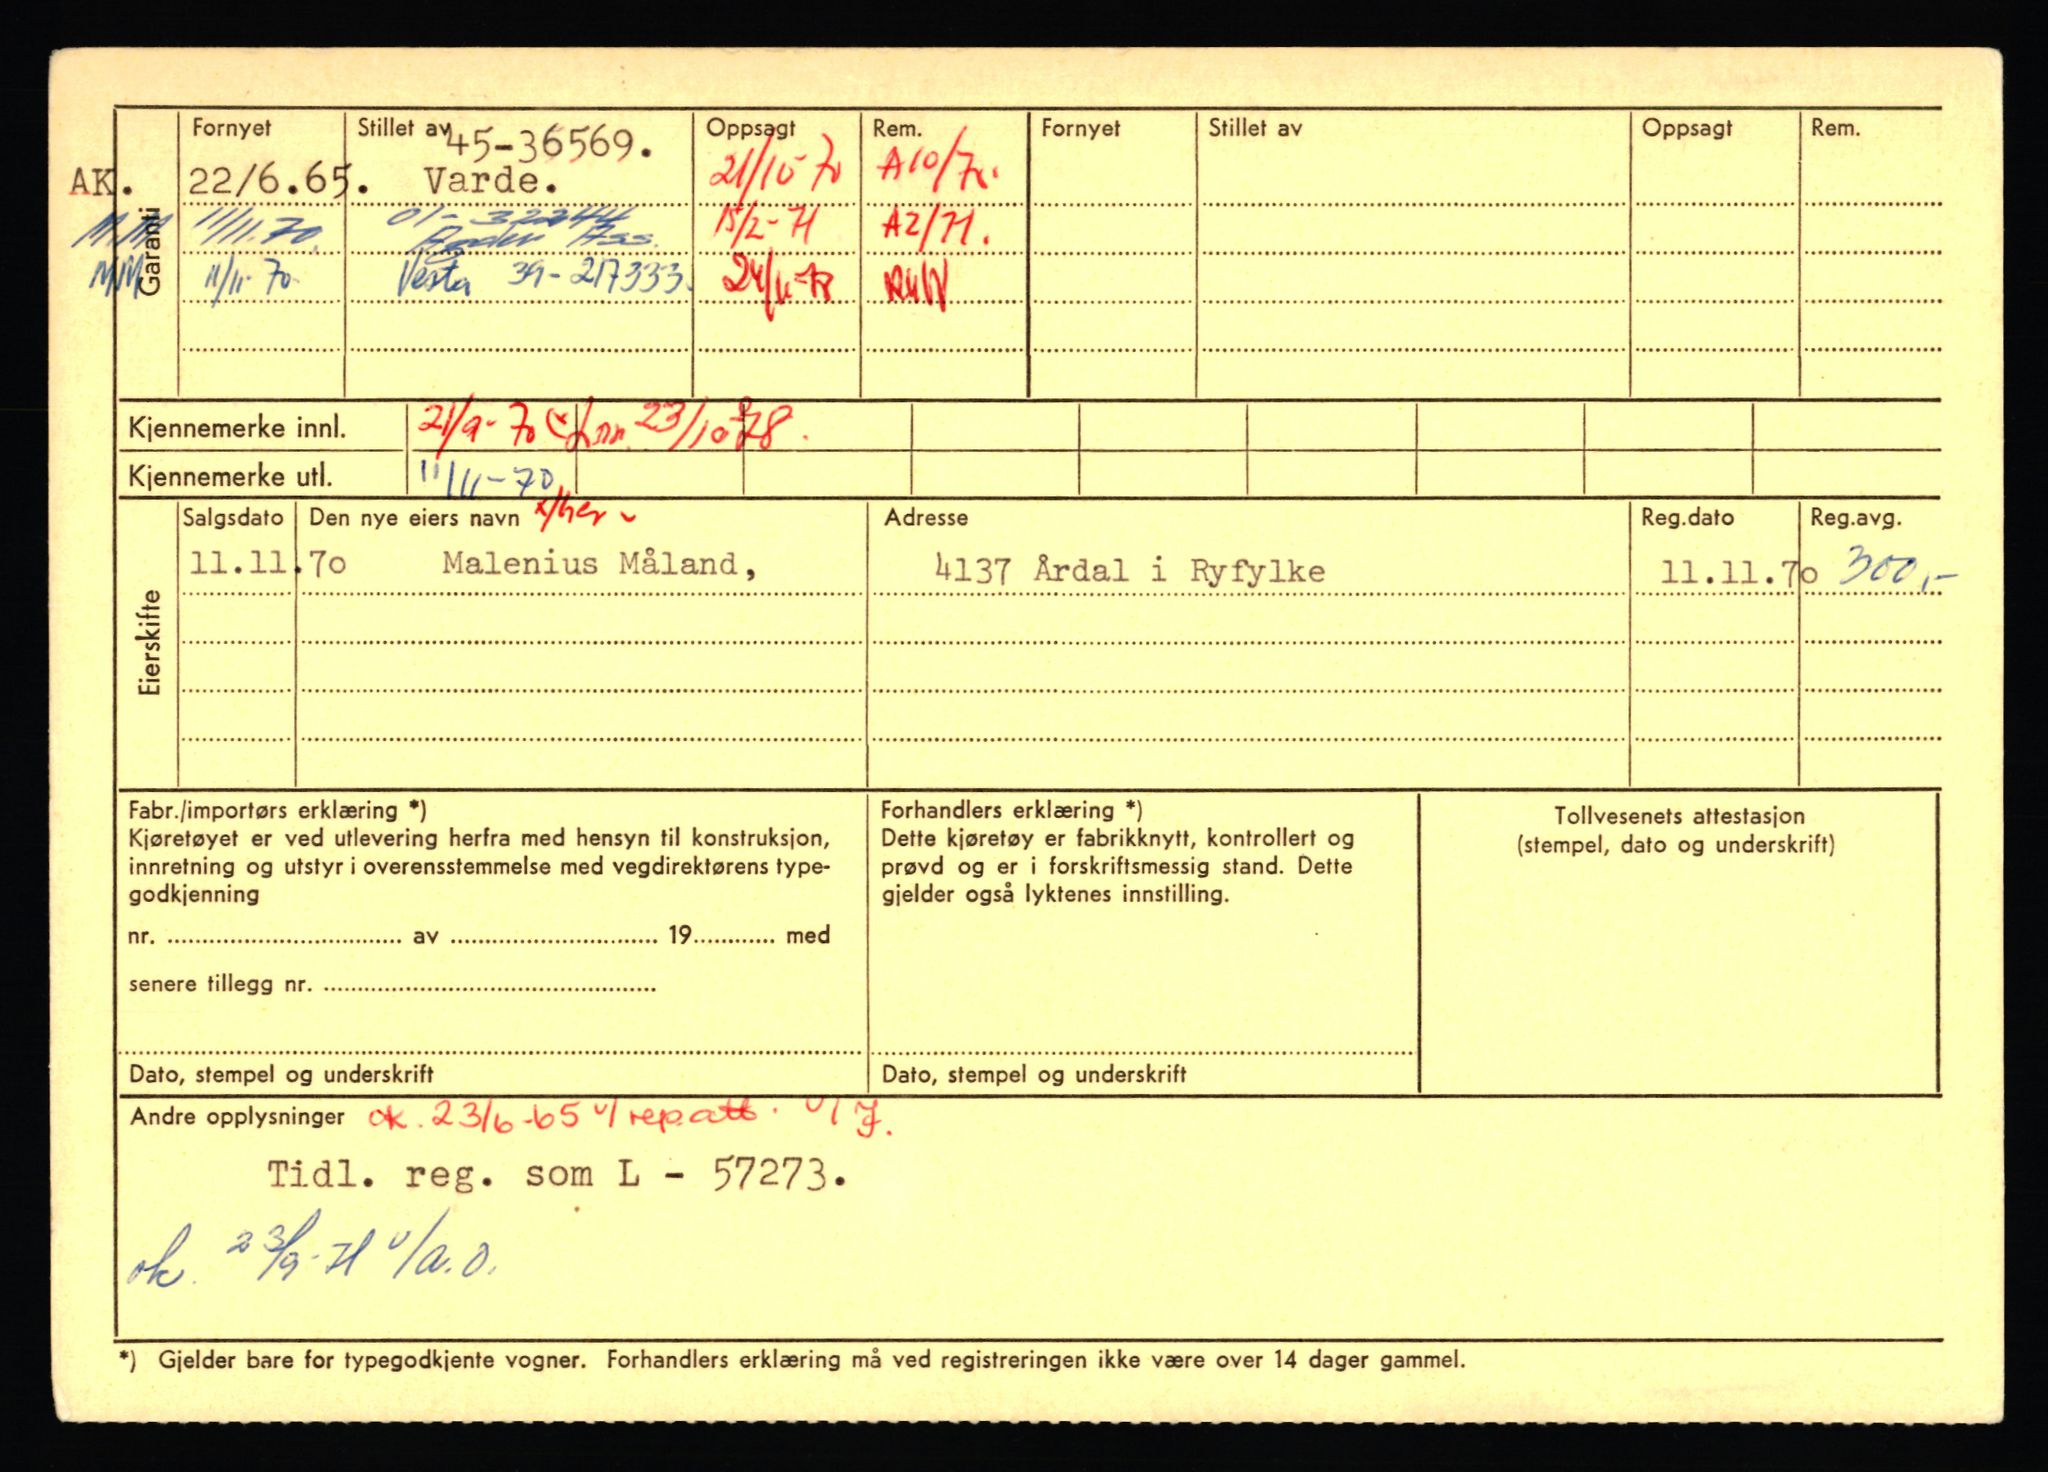 Fornyet Stillet av Oppsagt Rem. Fornyet Stillet av Oppsagt Rem.
45-36569.
AK. 22/6.65. Varde. 21/10-70 A10/70.
Garanti
M.M 11/11.70. 01-32244 15/2-71 A2/71.
MM 11/11-70. Vesta 39-217333.
Kjennemerke innl. 21/9-70 23/10-78.
Kjennemerke utl. 11/11-70
Salgsdato Den nye eiers navn Adresse Reg.dato Reg.avg.
11.11.70 Malenius Måland, 4137 Årdal i Ryfylke 11.11.70 300,-
Eierskifte
Fabr./importørs erklæring *)
Kjøretøyet er ved utlevering herfra med hensyn til konstruksjon,
innretning og utstyr i overensstemmelse med vegdirektørens type-
godkjenning
nr. av 19 med
senere tillegg nr.
Dato, stempel og underskrift
Forhandlers erklæring *)
Dette kjøretøy er fabrikknytt, kontrollert og
prøvd og er i forskriftsmessig stand. Dette
gjelder også lyktenes innstilling.
Dato, stempel og underskrift
Tollvesenets attestasjon
(stempel, dato og underskrift)
Andre opplysninger ok. 23/6-65 u/ rep.att.
Tidl. reg. som L - 57273.
ok. 23/9-71 u/a.o.
*) Gjelder bare for typegodkjente vogner. Forhandlers erklæring må ved registreringen ikke være over 14 dager gammel.